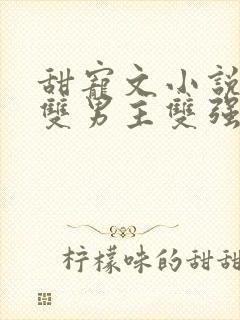 甜寵文小説
雙男主雙强
柠檬味的甜甜